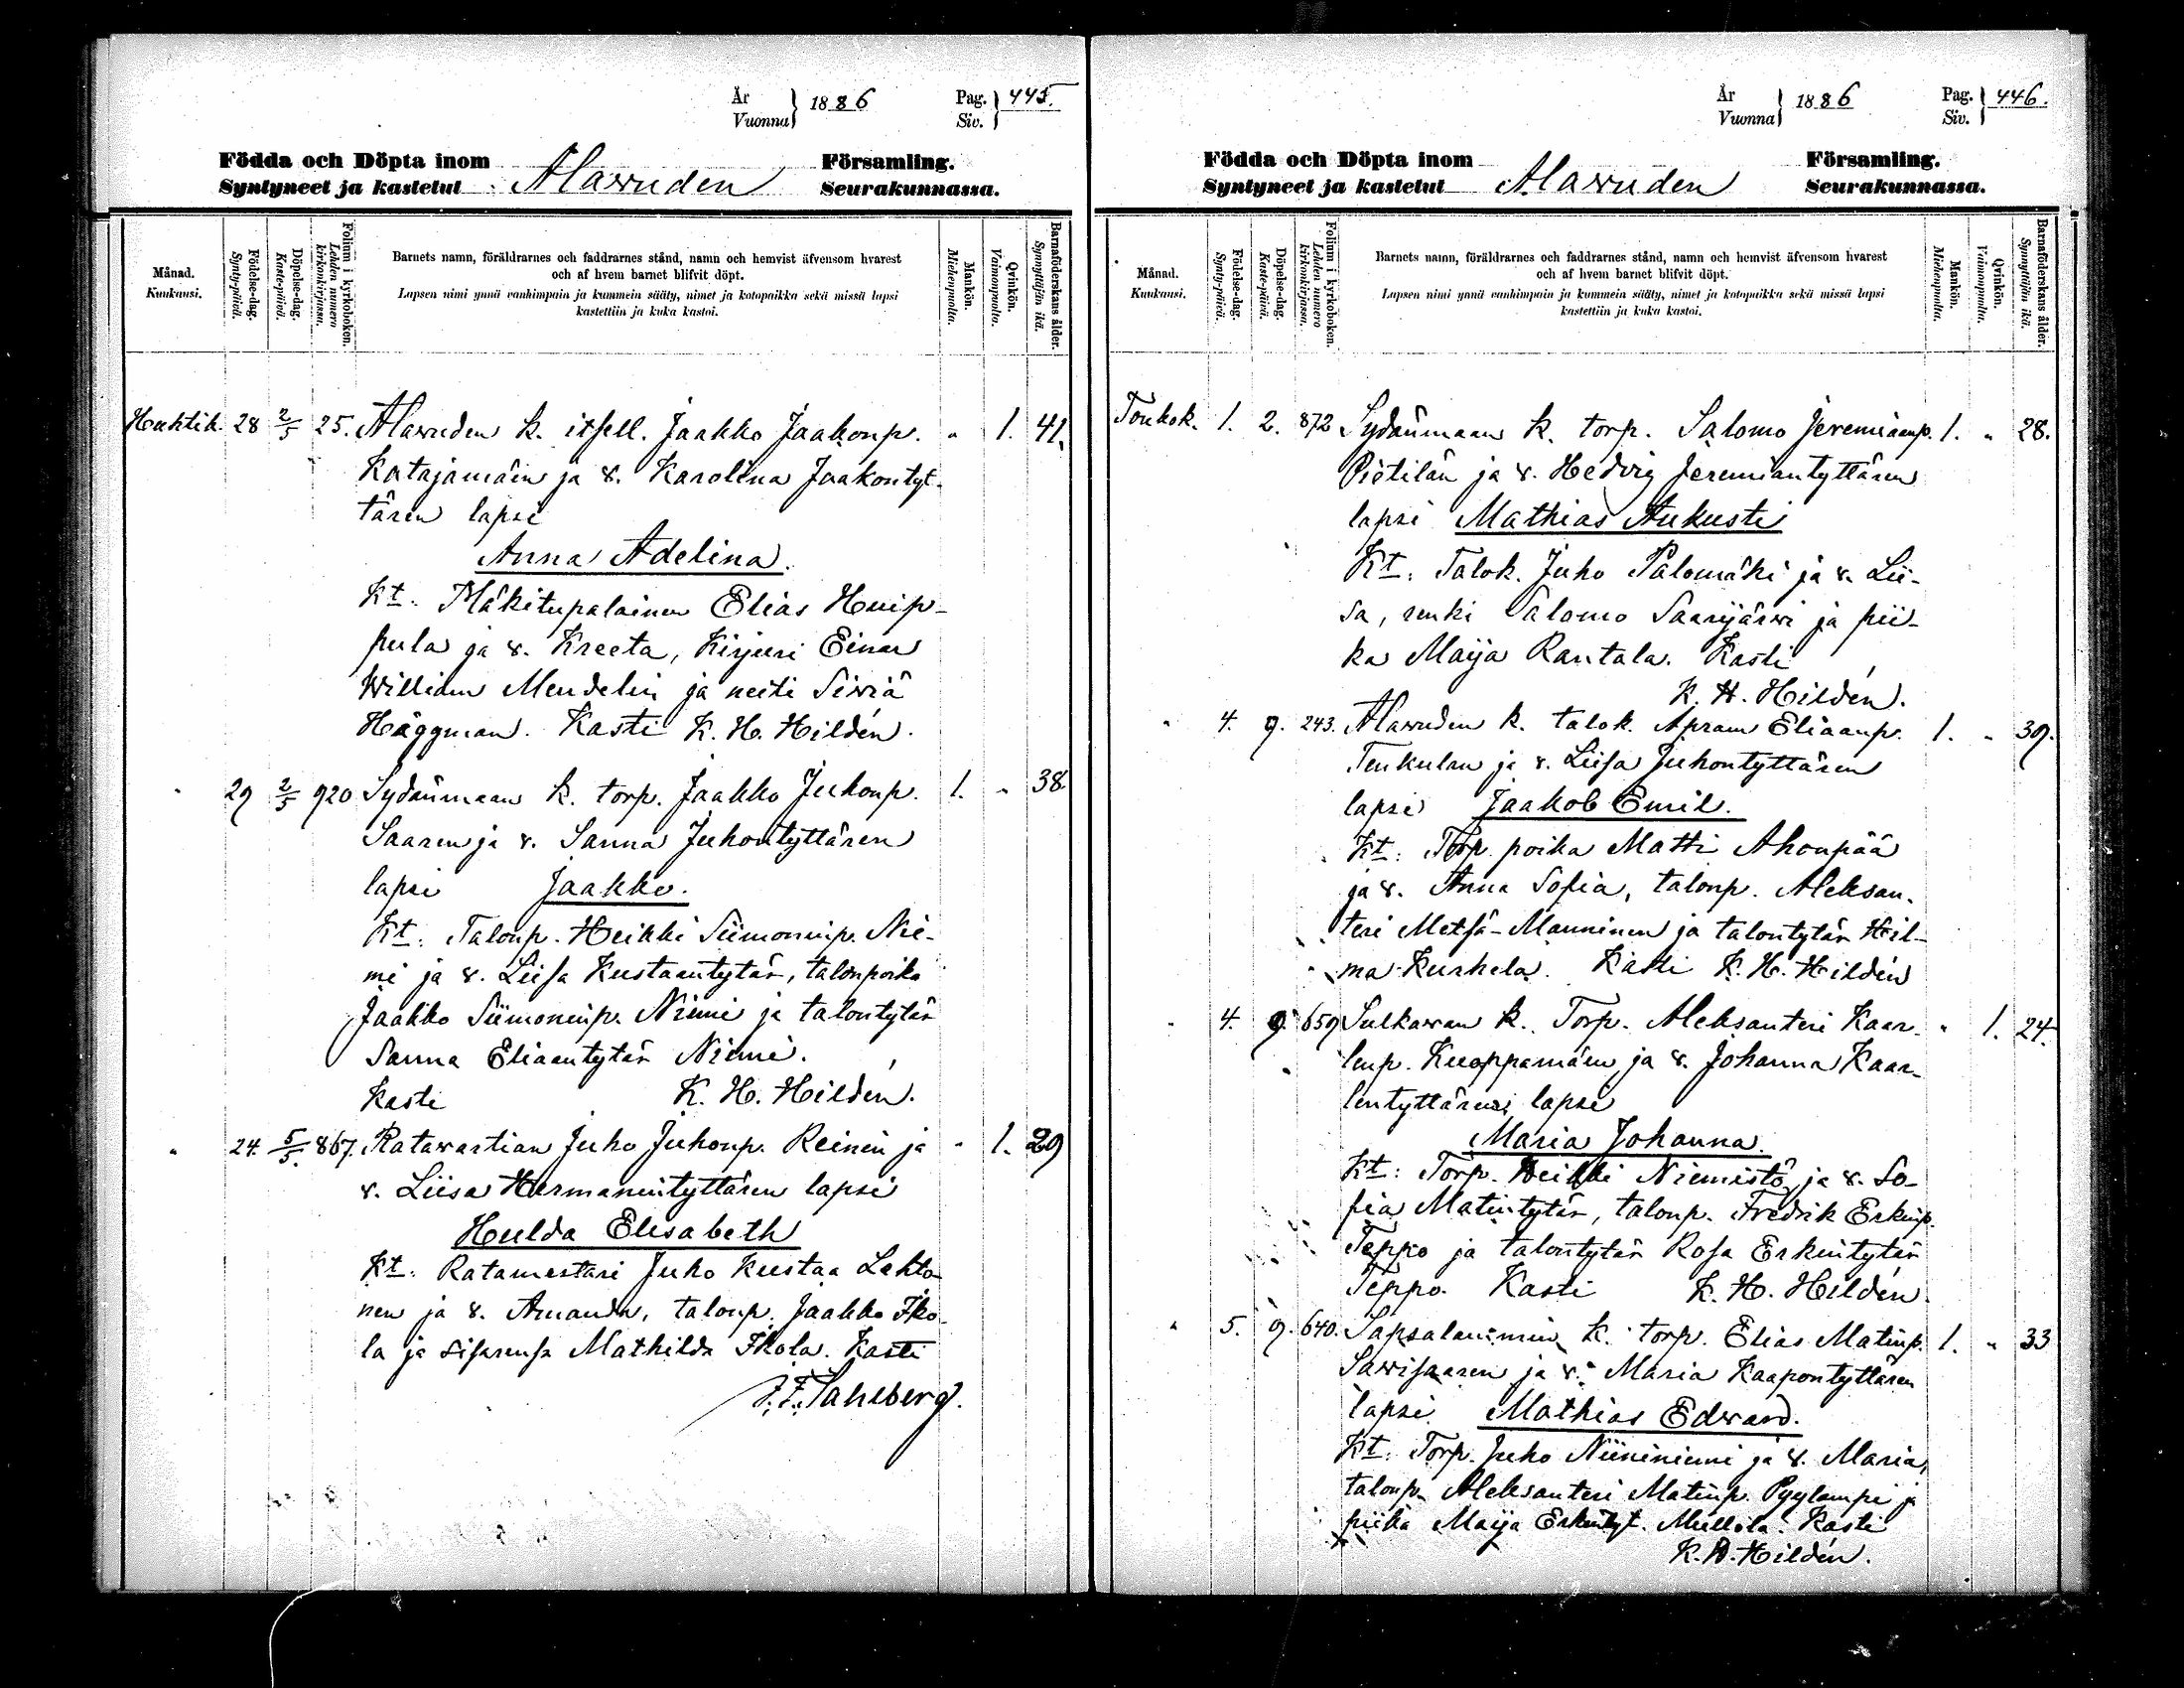 År
Vuonna } 1886
Pag.
Siv. } 445.
Födda och Döpta inom Församling.
Syntyneet ja kastetut Alawuden Seurakunnassa.
Månad.
Kuukausi.
Födelse-dag.
Synty-päivä.
Döpelse-dag.
Kaste-päivä.
Folium i kyrkoboken.
Lehden numero
kirkonkirjassa.
Barnets namn, föräldrarnes och faddrarnes stånd, namn och hemvist äfvensom hvarest
och af hvem barnet blifvit döpt.
Lapsen nimi ynnä vanhimpain ja kummein sääty, nimet ja kotopaikka sekä missä lapsi
kastettiin ja kuka kastoi.
Mankön.
Miehenpuolta.
Qvinkön.
Vaimonpuolta.
Barnaföderskans ålder.
Synnyttäjän ikä.
Huhtik. 28 2/5 25. Alawuden k. itsell. Jaakko Jaakonp. " 1. 41.
Katajamäen ja v. Karolina Jaakontyt-
tären lapsi
Anna Adelina.
Kt: Mäkitupalainen Elias Huip-
pula ja v. Kreeta, Kirjuri Einar
William Mendelin ja neiti Siwiä
Häggman. Kasti K. H. Hildén.
" 29 2/5 920 Sydänmaan k. torp. Jaakko Juhonp. 1. " 38.
Saaren ja v. Sanna Juhontyttären
lapsi Jaakko.
Kt: Talonp. Heikki Siimoninp. Nie-
mi ja v. Liisa Kustaantytär, talonpoika
Jaakko Siimoninp. Niemi ja talontytär
Sanna Eliaantytär Niemi.
Kasti K. H. Hildén.
" 24. 5/5. 867. Ratawartian Juho Juhonp. Reinin ja " 1. 29
v. Liisa Hermanintyttären lapsi
Hulda Elisabeth
Kt: Ratamestari Juho Kustaa Lehto-
nen ja v. Amanda, talonp. Jaakko Iko-
la ja sisarensa Mathilda Ikola. Kasti
J. F. Sahlberg.
År
Vuonna } 1886
Pag.
Siv. } 446.
Födda och Döpta inom Församling.
Syntyneet ja kastetut Alawuden Seurakunnassa.
Månad.
Kuukausi.
Födelse-dag.
Synty-päivä.
Döpelse-dag.
Kaste-päivä.
Folium i kyrkoboken.
Lehden numero
kirkonkirjassa.
Barnets namn, föräldrarnes och faddrarnes stånd, namn och hemvist äfvensom hvarest
och af hvem barnet blifvit döpt.
Lapsen nimi ynnä vanhimpain ja kummein sääty, nimet ja kotopaikka sekä missä lapsi
kastettiin ja kuka kastoi.
Mankön.
Miehenpuolta.
Qvinkön.
Vaimonpuolta.
Barnaföderskans ålder.
Synnyttäjän ikä.
Toukok. 1. 2. 872 Sydänmaan k. torp. Salomo Jeremiaanp. 1. " 28.
Pietilän ja v. Hedvig Jeremiantyttären
lapsi Mathias Aukusti
Kt: Talok. Juho Palomäki ja v. Lii-
sa, renki Salomo Saarijärwi ja pii-
ka Maija Rantala. Kasti
K. H. Hildén.
" 4. 9. 243. Alawuden k. talok. Apram Eliaanp. 1. " 39.
Tenkulan ja v. Liisa Juhontyttären
lapsi Jaakob Emil.
Kt: Torp. poika Matti Ahonpää
ja v. Anna Sofia, talonp. Aleksan-
teri Metsä-Manninen ja talontytär Hil-
ma Kurhela. Kasti K. H. Hildén
" 4. 9. 659 Sulkawan k. Torp. Aleksanteri Kaar- " 1. 24.
lenp. Kuoppamäen ja v. Johanna Kaar-
lentyttären lapsi
Maria Johanna.
Kt: Torp. Heikki Niemistö ja v. So-
fia Matintytär, talonp. Fredrik Erkinp.
Teppo ja talontytär Rosa Erkintytär
Teppo. Kasti K. H. Hildén.
" 5. 9. 640. Sapsalammin k. torp. Elias Matinp. 1. " 33
Sawisaaren ja v. Maria Kaapontyttären
lapsi Mathias Edward.
Kt: Torp. Juho Niininiemi ja v. Maria,
talonp. Aleksanteri Matinp. Pyylampi ja
piika Maija Erkintyt. Mullola. Kasti
K. H. Hildén.